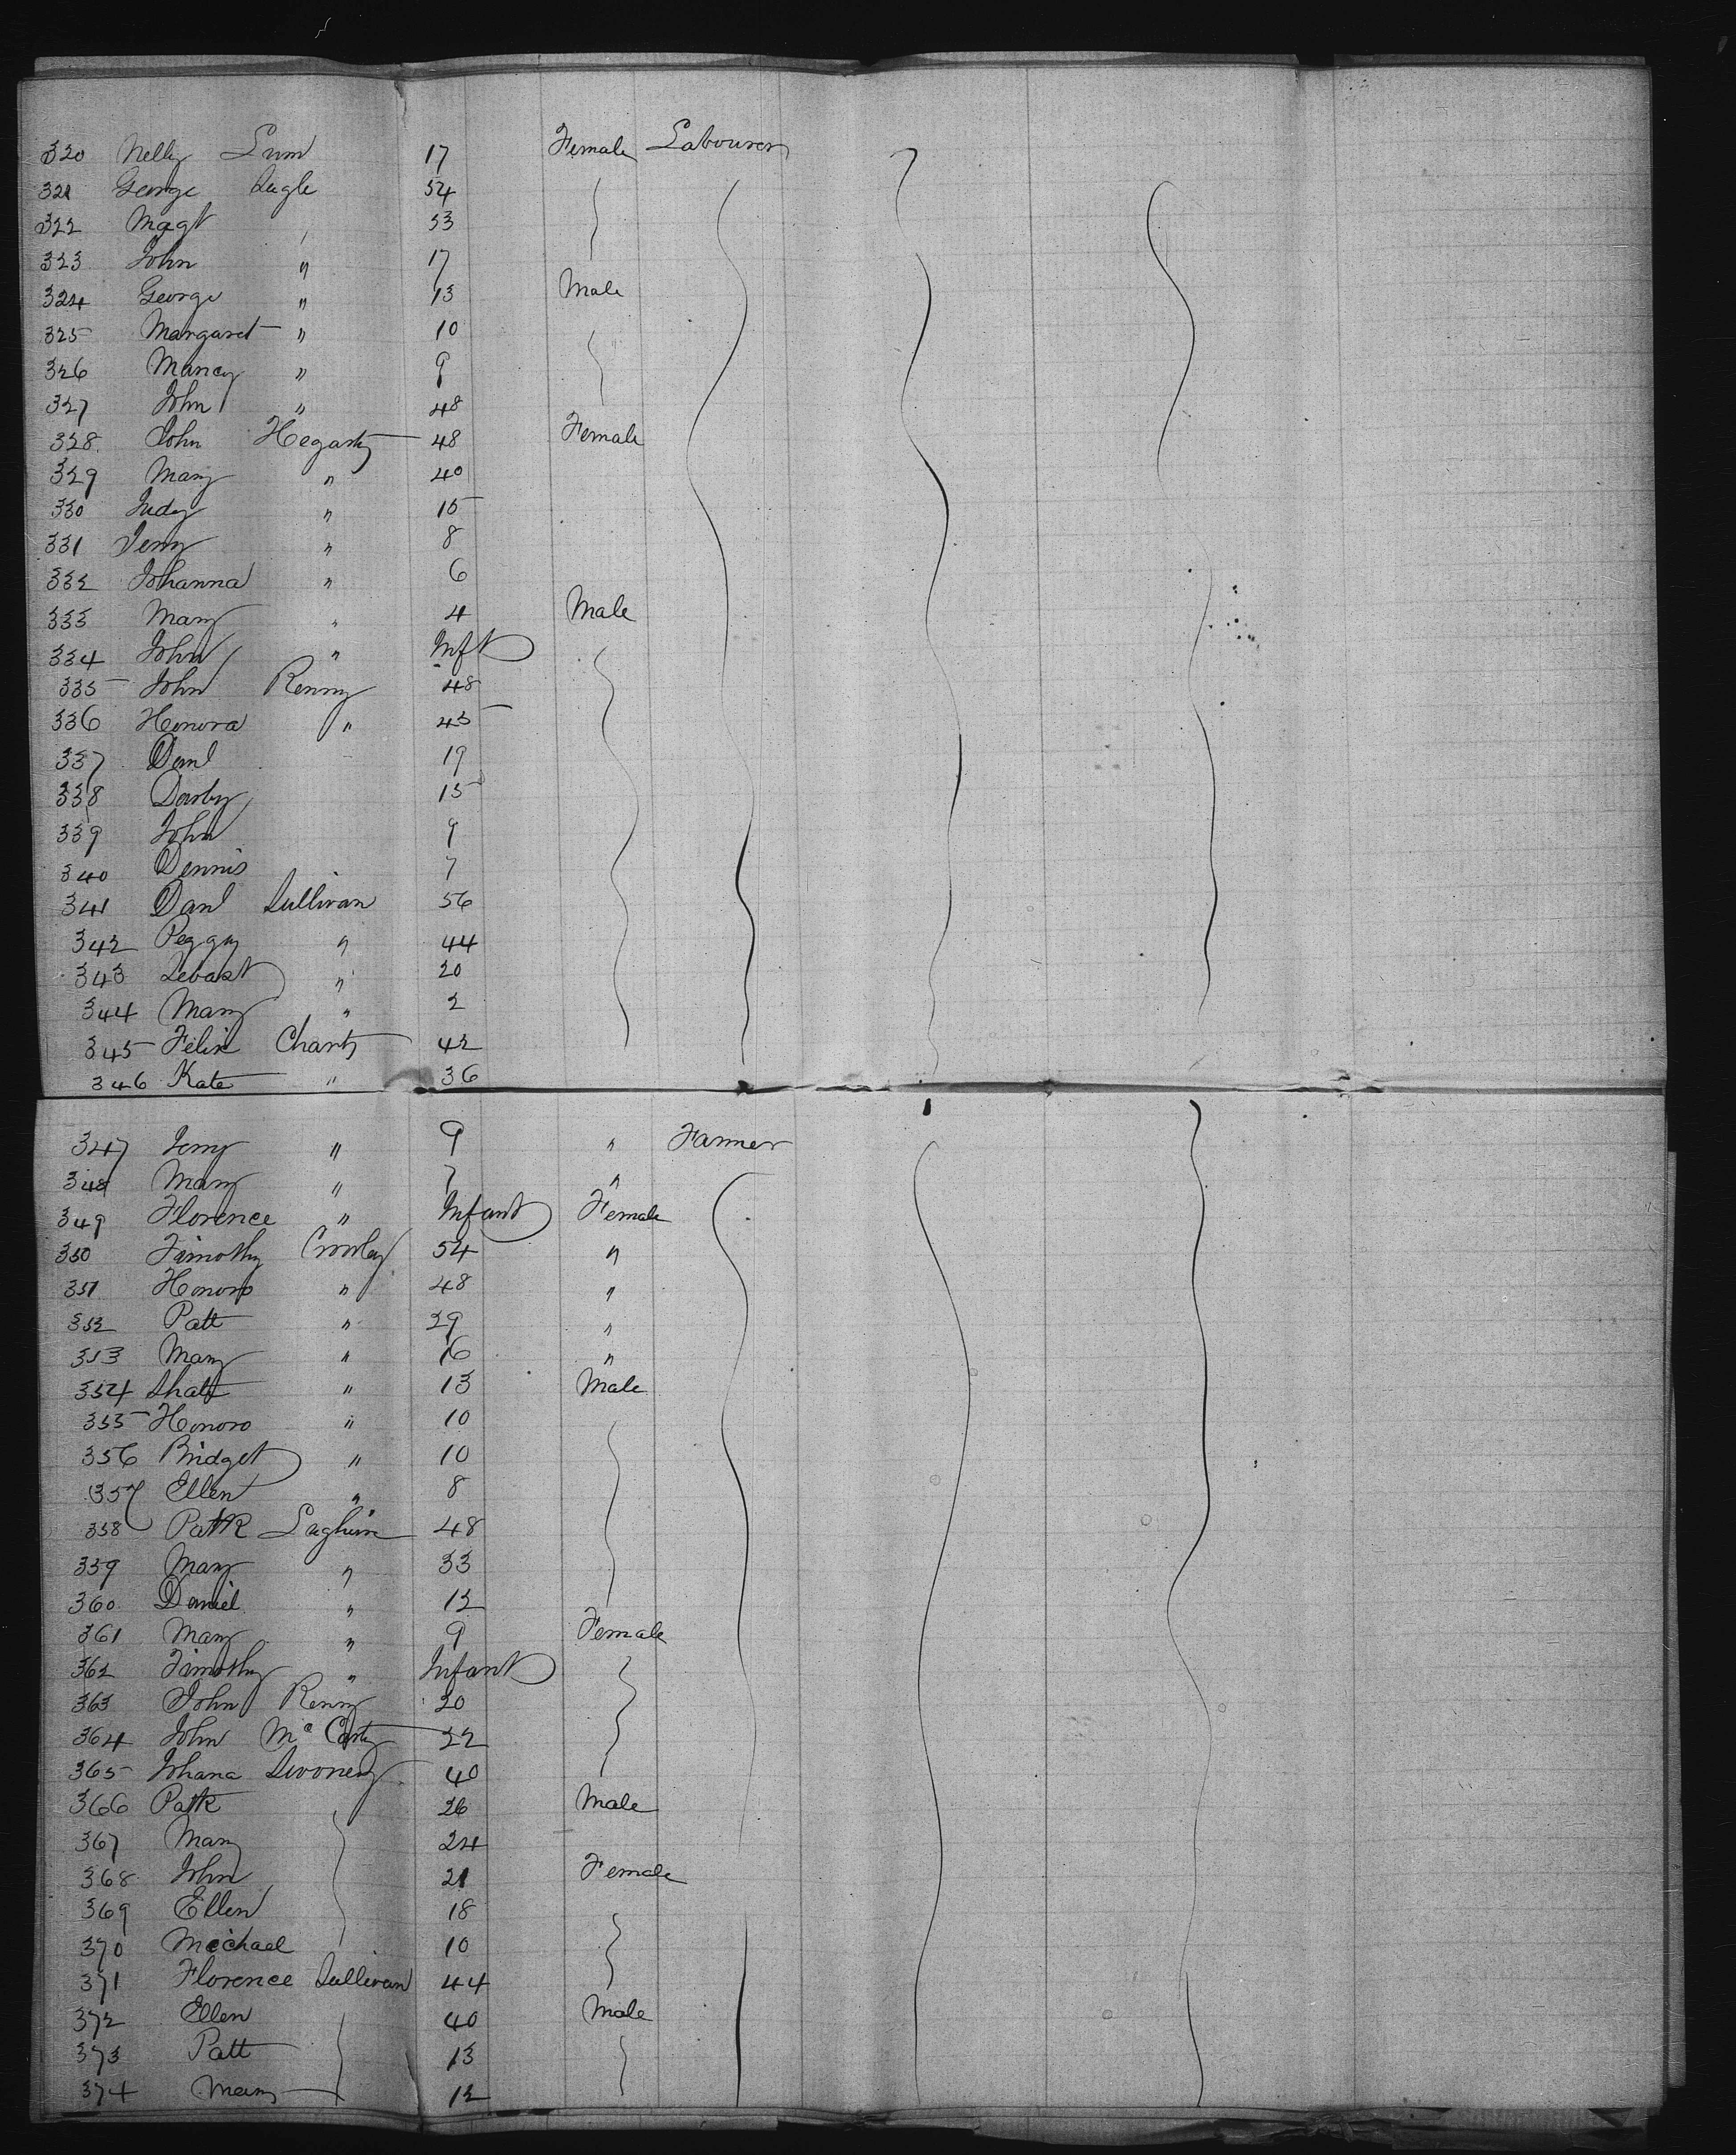 320 Nelly Lum 17 Female Labourer
321 George Lugle 54
322 Magt " 53
323 John " 17
324 George " 13 Male
325 Margaret " 10
326 Mancy " 9
327 John " 48
328 John Hegarty 48 Female
329 Mary " 40
330 Judy " 15
331 Jerry " 8
332 Johanna " 6
333 Mary " 4 Male
334 John " Inft
335 John Renny 48
336 Honora " 45
337 Danl 19
338 Darby 15
339 John 9
340 Dennis 7
341 Danl Sullivan 56
342 Peggy " 44
343 " 20
344 Mary " 2
345 Felix Charty 42
346 Kate " 36
347 Jerry " 9 " Farmer
348 Mary " 7 "
349 Florence " Infant Female
350 Timothy Crowley 54 "
351 Honoro " 48 "
352 Patt " 29 "
353 Mary " 16 "
354 " 13 Male
355 Honoro " 10
356 Bridget " 10
357 Ellen " 8
358 Patk 48
359 Mary " 33
360 Daniel " 12
361 Mary " 9 Female
362 Timothy " Infant
363 John Renny 20
364 John Mc Carty 22
365 Johana 40
366 Patk 26 Male
367 Mary 24
368 John 21 Female
369 Ellen 18
370 Michael 10
371 Florence Sullivan 44
372 Ellen 40 Male
373 Patt 13
374 Mary 12